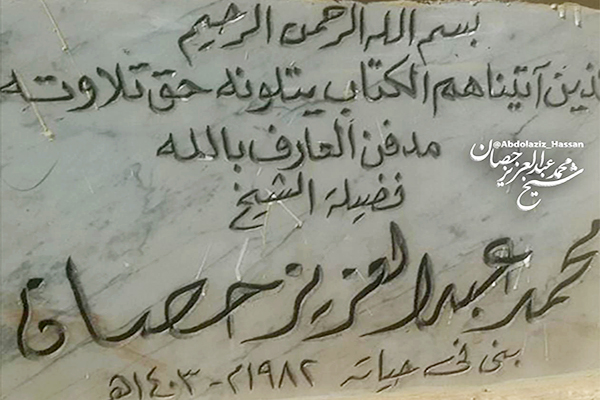 بسم الله الرحمن الرحيم
لذين آتيناهم الكتاب يتلونه حق تلاوته
مدفن العارف بالله
فضيلة الشيخ
محمد عبد العزيز حصان
بنى فى حياته ١٩٨٢م - ١٤٠٣هـ
@Abdolaziz_Hassan
شيخ محمد عبدالعزيز حصان